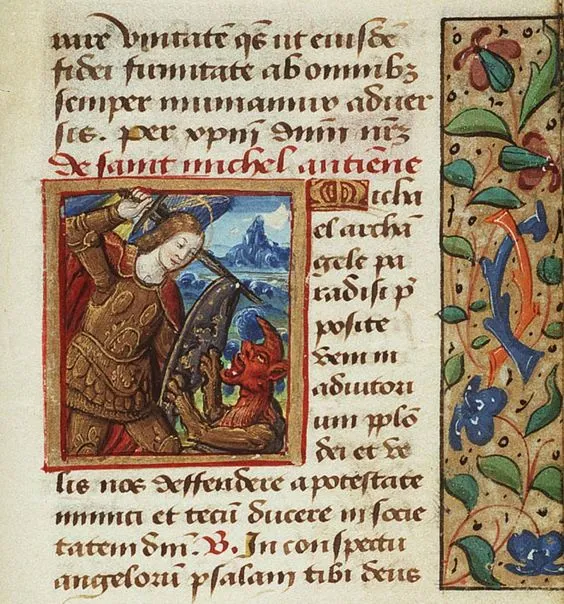 rare vnitatē qs̄ ut eiusdē
fidei firmitate ab omnibꝫ
semper muniamur aduer
sis. per xp̄m dn̄m nr̄ꝫ
de saint michel antiēne
Micha
el archā
gele pa
radisi p̄
posite
veni in
adiutori
um pplo
dei et ve
lis nos deffendere a potestate
inimici et tecū ducere in socie
tatem dn̄i. V. In conspectu
angelorū psalam tibi deus